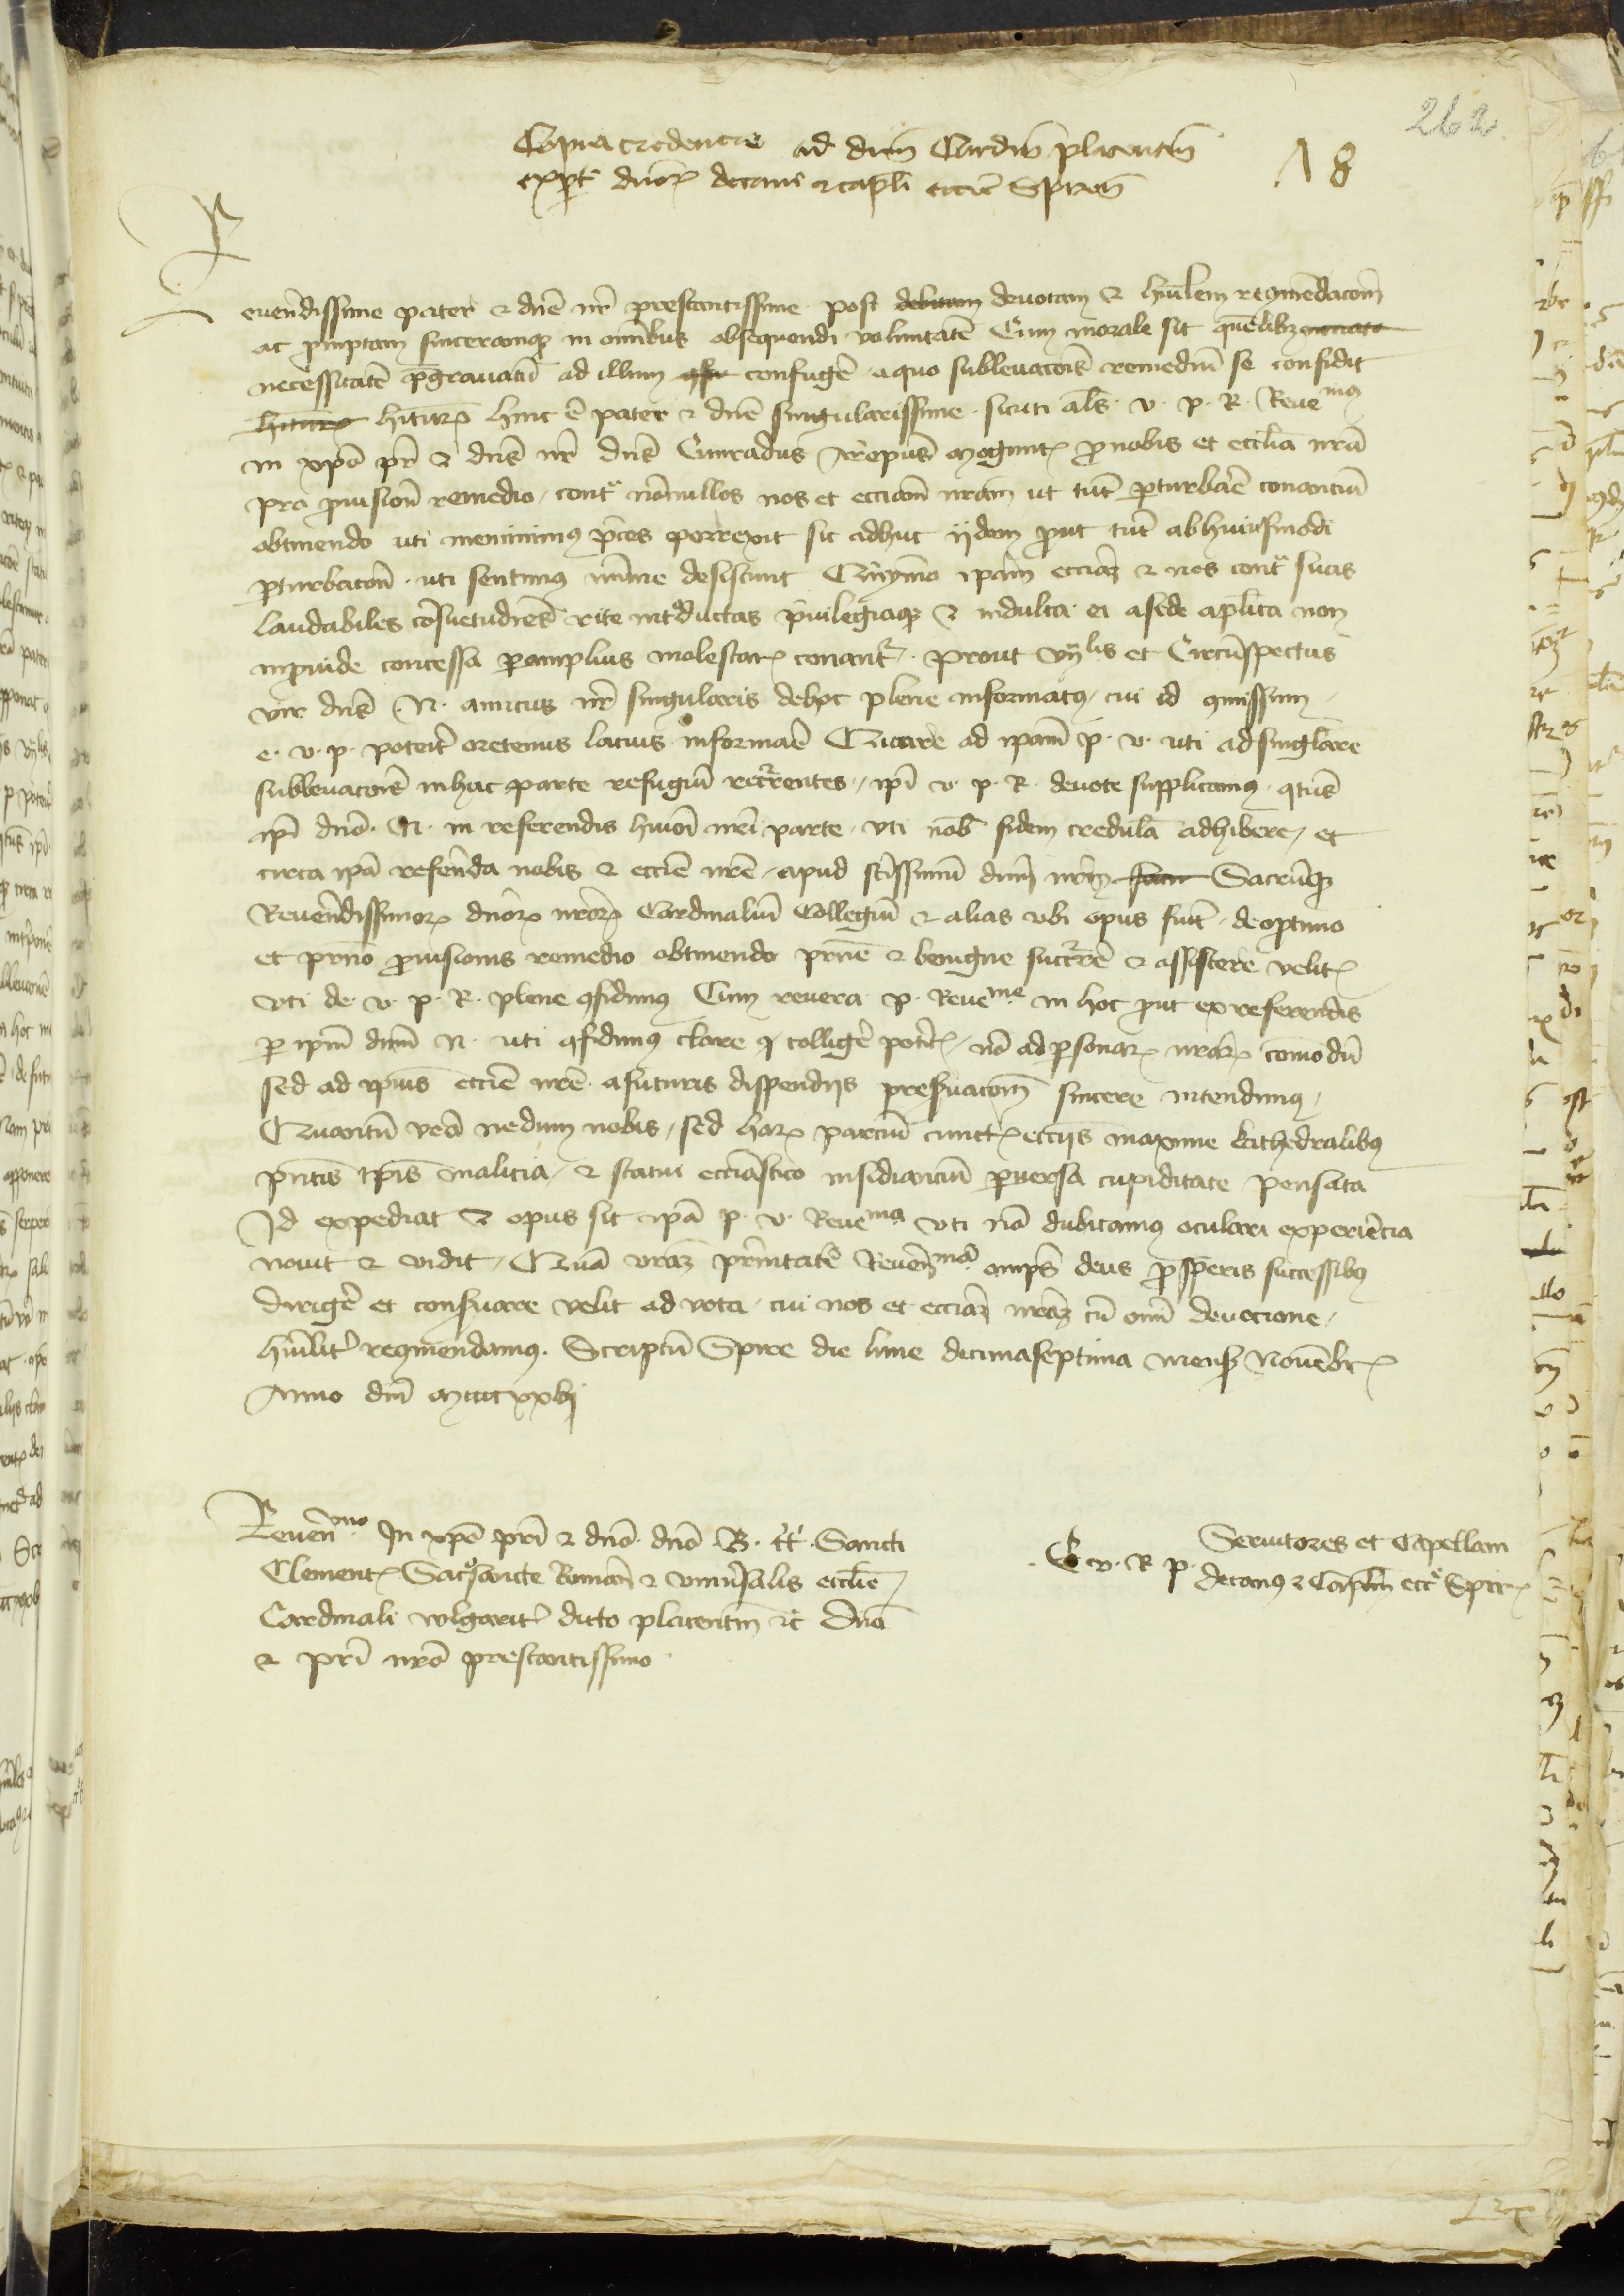 262
Copia credencie ad dnm Cardin placentin
ex pte dnorum decani et capli eccie Spiren
18
Reuerendissime pater et dne nr prestantissime post debitam deuotam et humilem recomendacoem
ac promptam sinceramque in omnibus obsequendi voluntate Cum morale sit quemlibet
necessitate pregrauatum ad illum confugere a quo subleuacois remedium se confidit
hiturum hiturum hinc e pater et dne singularissime sicuti als v. p. R. Reuemus
in xpo pr et dns nr dns Cunradus Arepus Moguntinus pro nobis et ecclia nra
pro prouisione remedio contra nonnullos nos et ecciam nram ut tunc perturbare conancium
obtinendo uti meminimus preces porrexit sic adhuc ijdem prout tunc ab huiusmodi
perturbacoe uti sentimus minime desistunt Quinymo ipam ecciam et nos contra suas
laudabiles consuetudines rite introductas priuilegiaque et indulta ei a sede aplica non
inprouide concessa peramplius molestare conantur prout vtilis et Circumspectus
vir dns N. amicus nr singularis de hoc plene informatus cui id commissum
e. v. p. poterit oretenus lacius informare Quare ad ipam p. v. uti ad singulare
subleuacois in hac parte refugium recurrentes ipi v. p. R. deuote supplicamus qtus
ipi dno N. in referendis huiusmodi nri parte vti nob fidem credulam adhibere et
circa ipa referenda nobis et eccie nre apud scissimum dnm nrm Sacrumque
Reuerendissimorum dnorum nrorum Cardinalium Collegium et alias vbi opus fuerit de optimo
et prno prouisionis remedio obtinendo prne et benigne succurrere et assistere velit
vti de v. p. R. plene confidimus Cum reuera p. Reueme in hoc prout ex referendis
per ipm dnm N. uti confidimus clare colligere poterit no ad personarum nrarum comodum
sed ad ipius eccie nre a futuris dispendijs preseruacoem sincere intendimus
Quantum vero nedum nobis sed harum parcium cunctis eccijs maxime kathedralibus
pntis tpis malicia et statui ecclastico insidiancium peruersa cupiditate pensata
Id expediat et opus sit ipa p. v. Reuema vti no dubitamus oculari experiencia
nouit et vidit Qua vram prnitate Reueremam omps deus prosperis successibus
dirigere et conseruare velit ad vota cui nos et ecciam nram cu omi deuocione
humilit recomendamus. Scriptum Spire die lune decimaseptima mens Nouembris
Anno dni Mccccxxvij
Reuerenmo In xpo pri et dno dno B. tt. Sancti
Clementis Sacrosancte Romane et vniuersalis ecclie
Cardinali wlgarit dicto placentin etc dno
et pri nro prestantissimo
E. v. R. p. Seruitores et Capellani
decanus et Caplm ecce Spiren